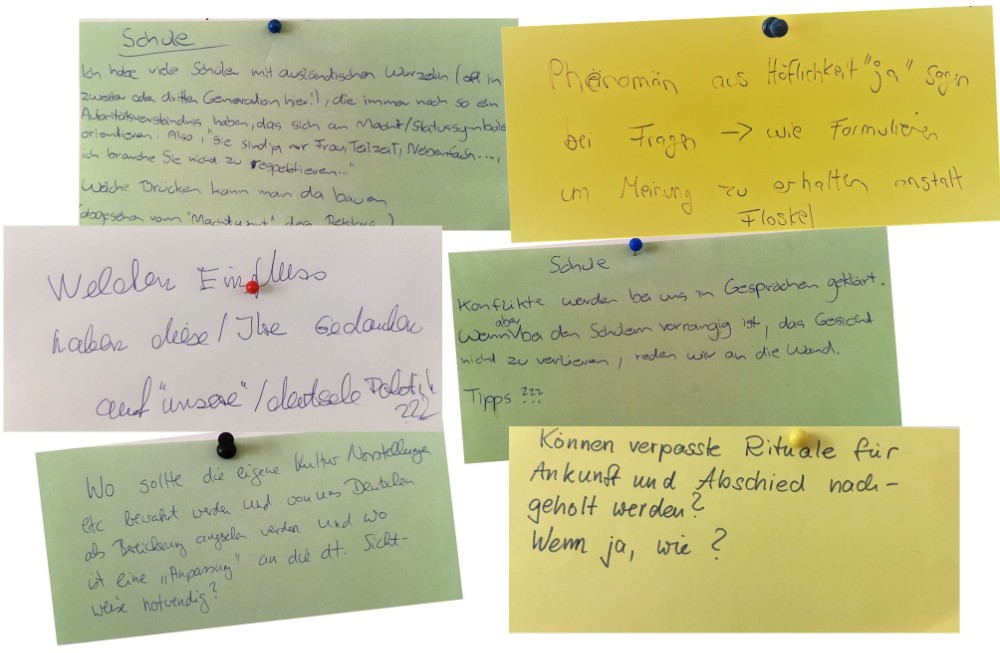 Schule
Ich habe viele Schüler mit ausländischen Wurzeln (oft in
zweiter oder dritter Generation hier!), die immer noch so ein
Autoritätsverständnis haben, das sich an Macht/Statussymbole
orientieren. Also, "Sie sind ja nur Frau, Teilzeit, Nebenfach...,
ich brauche Sie nicht zu respektieren..."
Welche Brücken kann man da bauen
(abgesehen vom "Machtwort" des Rektors)
Phänomän aus Höflichkeit "ja" sagen
bei Fragen → wie Formulieren
um Meinung zu erhalten anstatt
Floskel
Welchen Einfluss
haben diese/Ihre Gedanken
auf "unsere"/deutsche Politik
???
Schule
Konflikte werden bei uns in Gesprächen geklärt.
Wenn aber bei den Schülern vorrangig ist, das Gesicht
nicht zu verlieren, reden wir an die Wand.
Tipps ???
Wo sollte die eigene Kultur/Vorstellungen
etc bewahrt werden und von uns Deutschen
als Bereicherung angesehen werden und wo
ist eine "Anpassung" an die dt. Sicht-
weise notwendig?
Können verpasste Rituale für
Ankunft und Abschied nach-
geholt werden?
Wenn ja, wie?